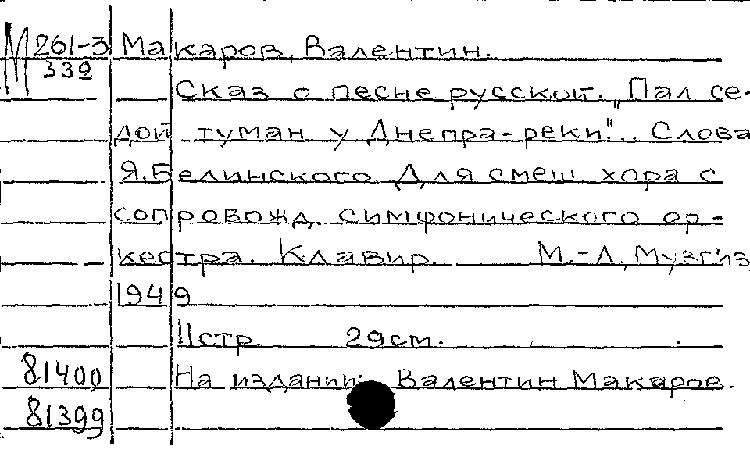 М 261-3 Макаров, Валентин.
339
Сказ о песне русской. „Пал се-
дой туман у Днепра-реки". Слова
Я. Белинского Для смеш хора с
сопровожд. симфонического ор-
кестра. Клавир. М.-Л, Музгиз
1949
11стр 29см.
81400 На издании: Валентин Макаров.
81399